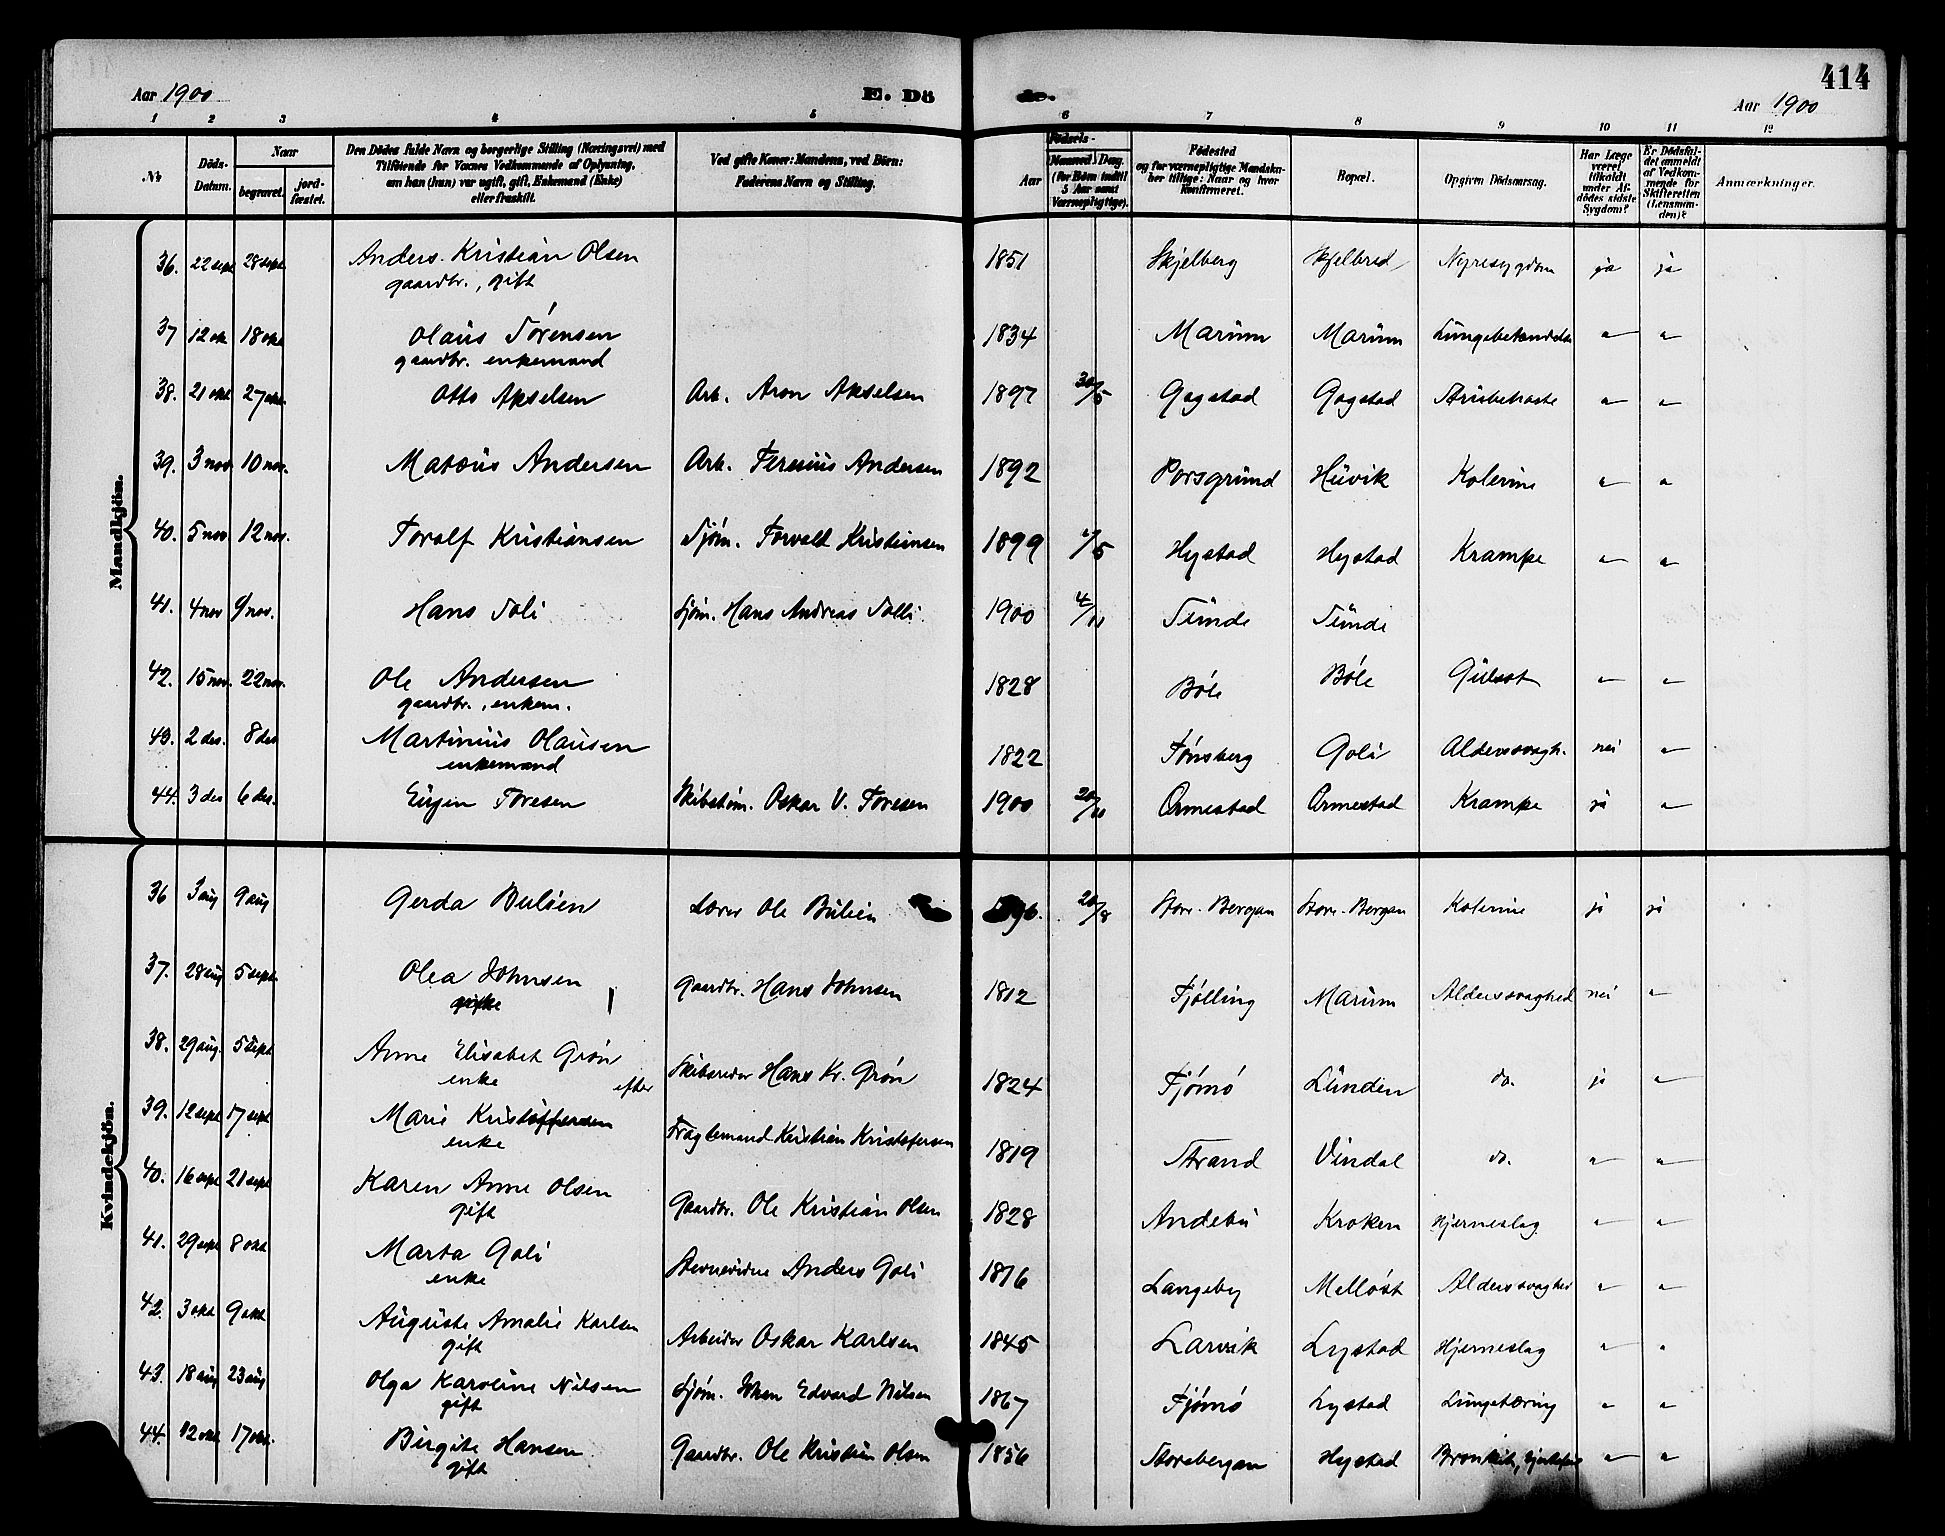 414
Aar 1900 E. Dö de. Aar 1900
1 2 3 4 5 6 7 8 9 10 11 12
№ Döds-Datum. Naar begravet. jord-fæstet. Den Dödes fulde Navn og borgerlige Stilling (Næringsvei) med Tilföiende for Voxnes Vedkommende af Oplysning, om han (hun) var ugift, gift, Enkemand (Enke) eller fraskilt. Ved gifte Koner: Mandens, ved Börn: Faderens Navn og Stilling. Aar Födsels- Maaned. Dag. (for Börn indtil 5 Aar samt Værnepligtige). Födested og for værnepligtige Mandskaber tillige: Naar og hvor konfirmeret. Bopæl. Opgiven Dödsaarsag. Har Læge været tilkaldt under Afdödes sidste Sygdom? Er Dödsfaldet anmeldt af Vedkommende for Skifteretten (Lensmanden)? Anmærkninger.
Mandkjön.
36. 22 sept 28 sept Anders Kristian Olsen 1851 Skjelberg Skjelbred Nyresygdom ja ja
gaardbr., gift
37 12 okt 18 okt Olaus Sørensen 1834 Marum Marum Lungebetændelse " "
gaardbr. enkemand
38. 21 okt 27 okt. Otto Akselsen Arb. Aron Akselsen 1897 30/5 Gogstad Gogstad Strubehoste " "
39. 3 nov. 10 nov. Mataus Andersen Arb. Andersen 1892 Porsgrund Huvik Kolerine " "
40. 5 nov 12 nov. Toralf Kristiansen Sjøm. Torvald Kristiansen 1899 /5 Hystad Hystad Krampe " "
41. 4 nov 9 nov. Hans Soli Sjøm. Hans Andreas Solli 1900 4/11 Sunde Sunde
42. 15 nov. 22 nov. Ole Andersen 1828 Bøle Bøle Gulsot " "
gaardbr., enkem.
43. 2 des. 8 des Martinius Olausen 1822 Tønsberg Goli Alderssvagh. nei "
enkemand
44. 3 des 6 des. Eugen Toresen Skibstøm. Oskar V. Toresen 1900 20/10 Ormestad Ormestad Krampe ja "
Kvindekjön.
36 3 aug 9 aug Gerda Bulien Lærer Ole Bulien 96. 20/8 Store-Bergan Store-Bergan Kolerine ja ja
37. 28 aug 5 sept. Olea Johnsen Gaardbr. Hans Johnsen 1812 Tjølling Marum Alderssvaghed nei "
38. 29 aug. 5 sept Anne Elisabet Grøn Skibsreder Hans Kr. Grøn 1824 Tjømø Lunden do. ja "
enke efter
39. 12 sept 17 sept Marie Kristoffersen Fragtemand Kristian Kristofersen 1819 Strand Vindal do. " "
enke
40. 16 sept 21 sept Karen Anne Olsen Gaardbr. Ole Kristian Olsen 1828 Andebu Kroken Hjerneslag " "
gift
41. 29 sept 8 okt Marta Goli Anders Goli 1816 Langeby Melløst Alderssvaghed " "
enke
42. 3 okt 9 okt Auguste Amalie Karlsen Arbeider Oskar Karlsen 1845 Larvik Lystad Hjerneslag " "
gift
43. 18 aug 23 aug Olga Karoline Nilsen Sjøm. Johan Edvard Nilsen 1867 Tjømø Lystad Lungetæring " "
gift
44. 12 okt 17 okt. Birgite Hansen Gaardbr. Ole Kristian Olsen 1856 Storebergan Hystad Bronkit, " "
gift